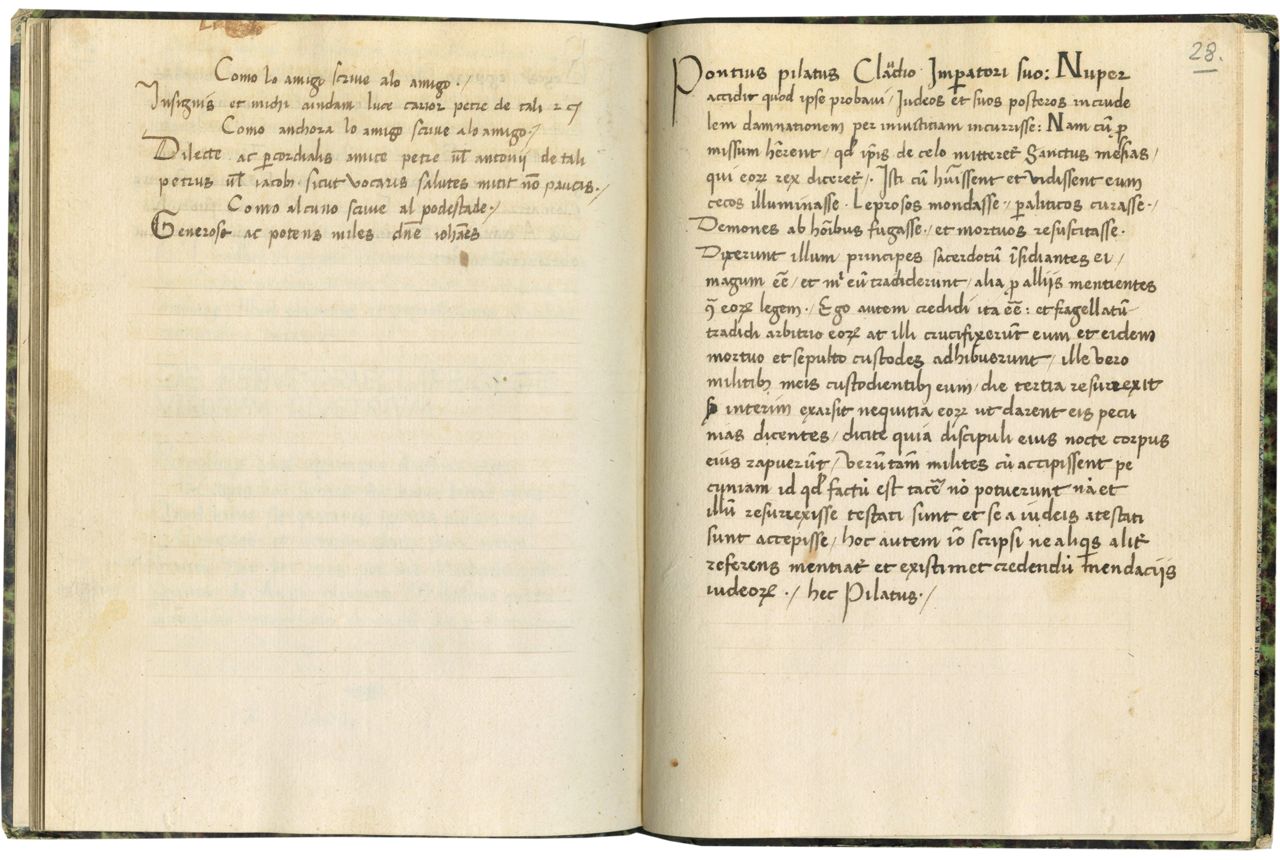 Como lo amigo scrive alo amigo ·/
Insignis et michi quidam luce carior petre de tali
Como anchora lo amigo scrive alo amigo·/
Dilecte ac p̱cordialis amice petre ul̄ antonij de tali
petrus ul̄ iacobi sicut vocaris salutes mitit nō paucas·/
Como alcuno scrive al podestade·/
Generose ac potens miles dn̄e ioħaēs
28.
Pontius pilatus Claudio Imp̱atori suo: Nuper
accidit quod ipse probavi / Iudeos et suos posteros in crude
lem damnationem per iniustitiam incurrisse: Nam cū ꝓ
missum hērent / qđ ip̄is de celo mitteret Sanctus messias /
qui eoꝝ rex diceret̄ /· Isti cū huīssent et vidissent eum
cecos illuminasse· Leprosos mondasse·, p̱aliticos curasse·/
Demones ab hoībus fugasse·/ et mortuos resuscitasse·
Dixerunt illum principes sacerdotū īsidiantes ei /
magum eē / et m̄ eū tradiderunt / alia ꝓ allijs mentientes
eoꝝ legem·/ Ego autem credidi ita eē: et fragellatū
tradidi arbitrio eoꝝ at illi crucifixerūt eum et eidem
mortuo et sepulto custodes adhibuerunt / ille vero
militibꝫ meis custodientibꝫ eum / die tertia resurrexit
interim exarsit nequitia eoꝝ ut darent eis pecu
nias dicentes / dicite quia discipuli eius nocte corpus
eius rapuerūt / verūtam̄ milites cū accipissent pe
cuniam id qđ factū est tacē nō potuerunt nā et
illū resurrexisse testati sunt et se a iudeis atestati
sunt accepisse / hoc autem iō scripsi ne aliq̱s alit̄
referens mentiat̄ et existimet credendū mendaciis
iudeoꝝ ·/ hec Pilatus·/